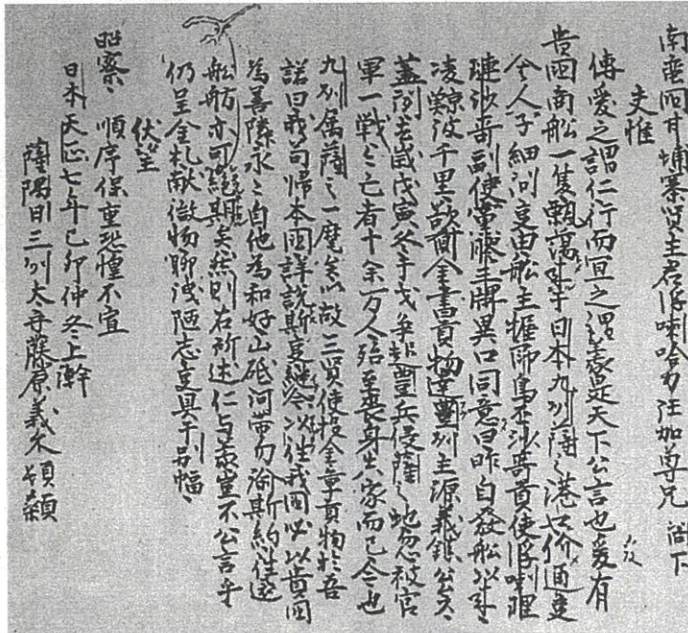 南蛮国甘埔寨賢主君浮喇哈力汪加尊兄 閤下
恭惟
博愛之謂仁行而宜之謂義是天下公言也爰有
貴国商船一隻飄蕩来于日本九州薩之港口
令人子細問変由船主握郎烏丕沙哥貴使浮喇理
璉沙哥副使党膝王牌異口同意曰昨自発船以来
凌鯨波千里欲齎金書貢物達豊州主源義鎮公矣
蓋前歳戊寅冬干戈争起豊兵侵薩之地忽被官
軍一戦之亡者十余万人殆至喪身失家而已今也
九州属薩之一麾矣以故三賢使投金章貢物於吾
諾曰我苟帰本国詳説斯変継今以往我国必以貴国
為善隣永々自他為和好山砥河帯勿渝其約往還
船舫亦可絶期矣然則右所述仁与義豈不公言乎
仍呈金札献微物聊洩陋志変具于別幅
伏望
昭察 順序保重恐惶不宣
日本天正七年己卯仲冬上澣
薩隅日三州太守藤原義久頓顙